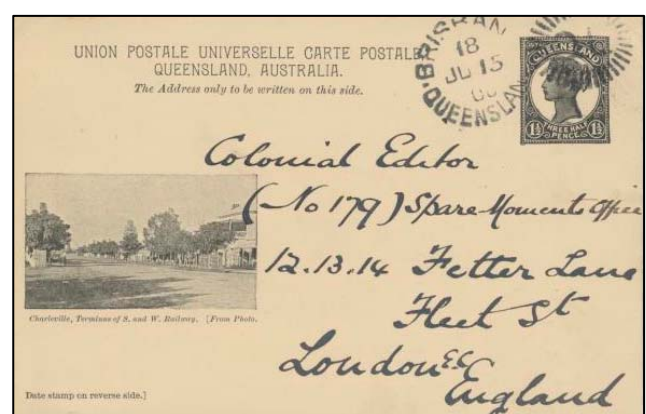 UNION POSTALE UNIVERSELLE CARTE POSTALE
QUEENSLAND, AUSTRALIA.
The Address only to be written on this side.
BRISBAN
18
JU 15
QUEENSLAN
QUEENSLAND
1½ THREE HALF PENCE 1½
Colonial Editor
(No 179) Spare Moments Office
12.13.14 Fetter Lane
Fleet St
London E.C
England
Charleville, Terminus of S. and W. Railway. [From Photo.
Date stamp on reverse side.]